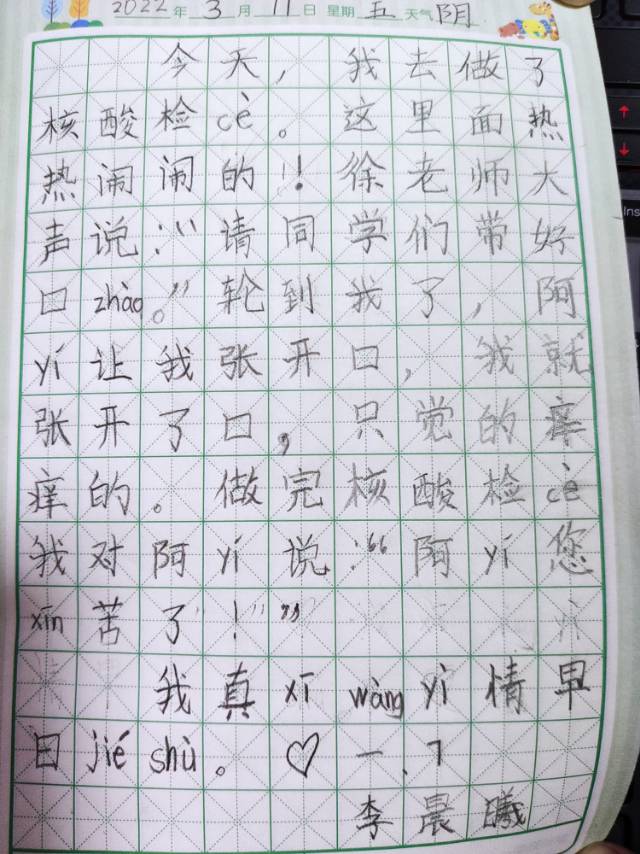 2022年3月11日 星期五 天气阴
今天，我去做了
核酸检cè。这里面热
热闹闹的！徐老师大
声说：“请同学们带好
口zhào。”轮到我了，阿
yí让我张开口，我就
张开了口，只觉的痒
痒的。做完核酸检cè
我对阿yí说：“阿yí您
xīn苦了！”
我真xī wàng yì情早
日jié shù。♡一、7
李晨曦
Ins